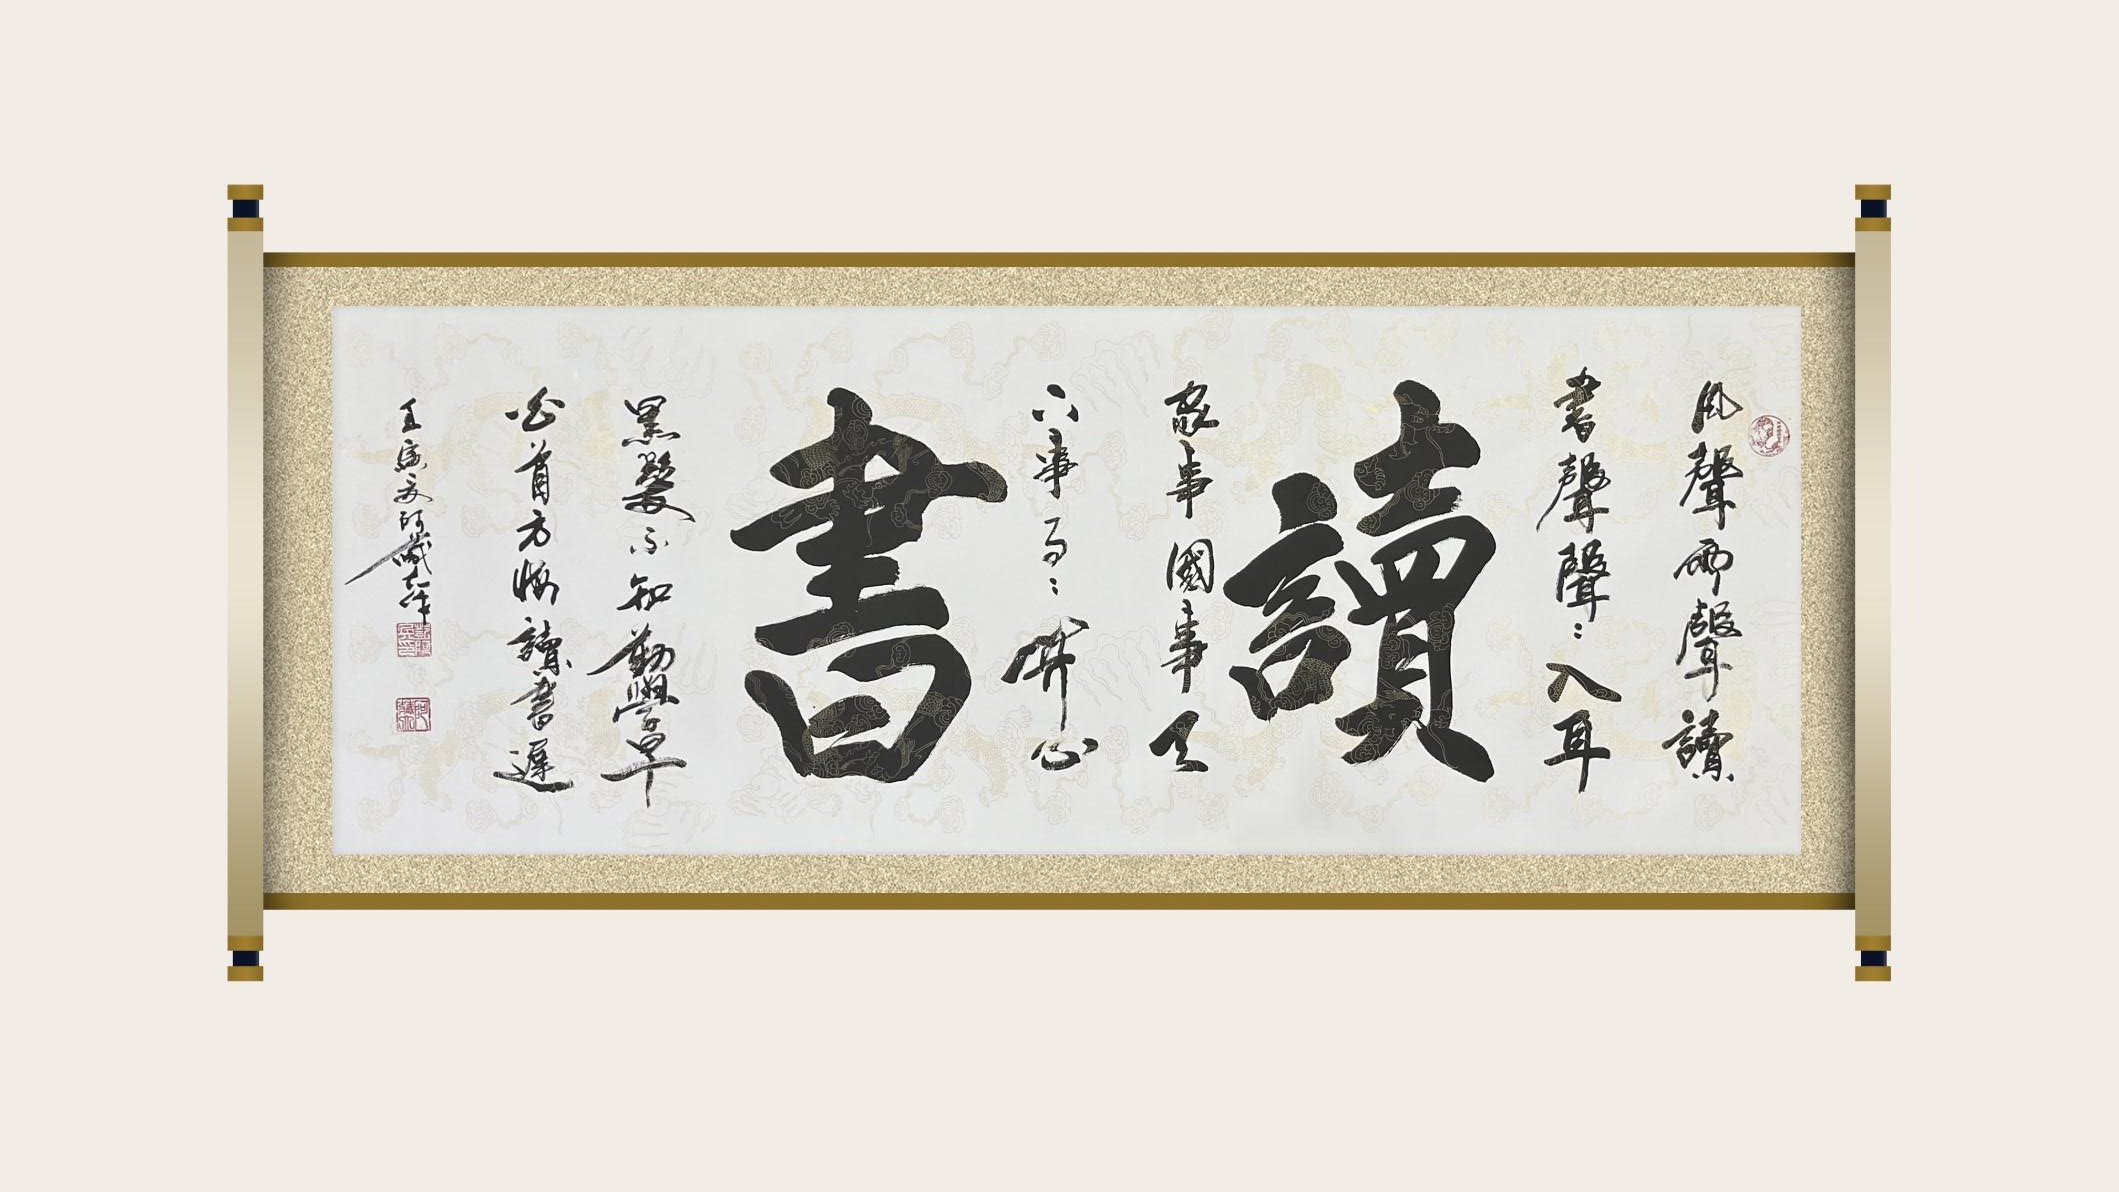 風聲雨聲讀
書聲聲：入耳
讀
家事國事天
下事事：關心
書
黑髮不知勤學早
白首方悔讀書遲